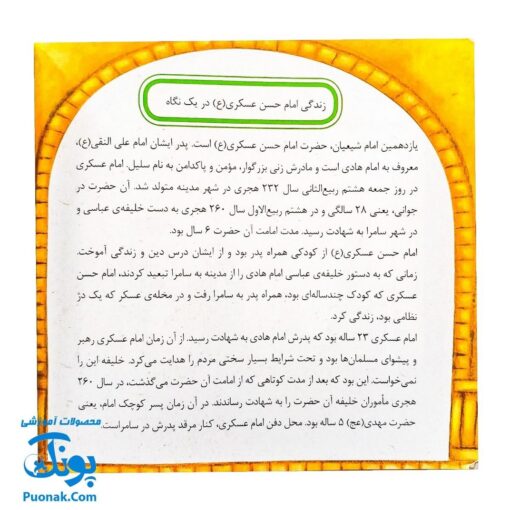 زندگی امام حسن عسکری(ع) در یک نگاه
یازدهمین امام شیعیان، حضرت امام حسن عسکری(ع) است. پدر ایشان امام علی النقی(ع)،
معروف به امام هادی است و مادرش زنی بزرگوار، مؤمن و پاکدامن به نام سلیل. امام عسکری
در روز جمعه هشتم ربیع‌الثانی سال ۲۳۲ هجری در شهر مدینه متولد شد. آن حضرت در
جوانی، یعنی ۲۸ سالگی و در هشتم ربیع‌الاول سال ۲۶۰ هجری به دست خلیفه‌ی عباسی و
در شهر سامرا به شهادت رسید. مدت امامت آن حضرت ۶ سال بود.
امام حسن عسکری(ع) از کودکی همراه پدر بود و از ایشان درس دین و زندگی آموخت.
زمانی که به دستور خلیفه‌ی عباسی امام هادی را از مدینه به سامرا تبعید کردند، امام حسن
عسکری که کودک چندساله‌ای بود، همراه پدر به سامرا رفت و در محله‌ی عسکر که یک دژ
نظامی بود، زندگی کرد.
امام عسکری ۲۳ ساله بود که پدرش امام هادی به شهادت رسید. از آن زمان امام عسکری رهبر
و پیشوای مسلمان‌ها بود و تحت شرایط بسیار سختی مردم را هدایت می‌کرد. خلیفه این را
نمی‌خواست. این بود که بعد از مدت کوتاهی که از امامت آن حضرت می‌گذشت، در سال ۲۶۰
هجری مأموران خلیفه آن حضرت را به شهادت رساندند. در آن زمان پسر کوچک امام، یعنی
حضرت مهدی(عج) ۵ ساله بود. محل دفن امام عسکری، کنار مرقد پدرش در سامراست.
محصولات آموزشی
پونک
Puonak.Com